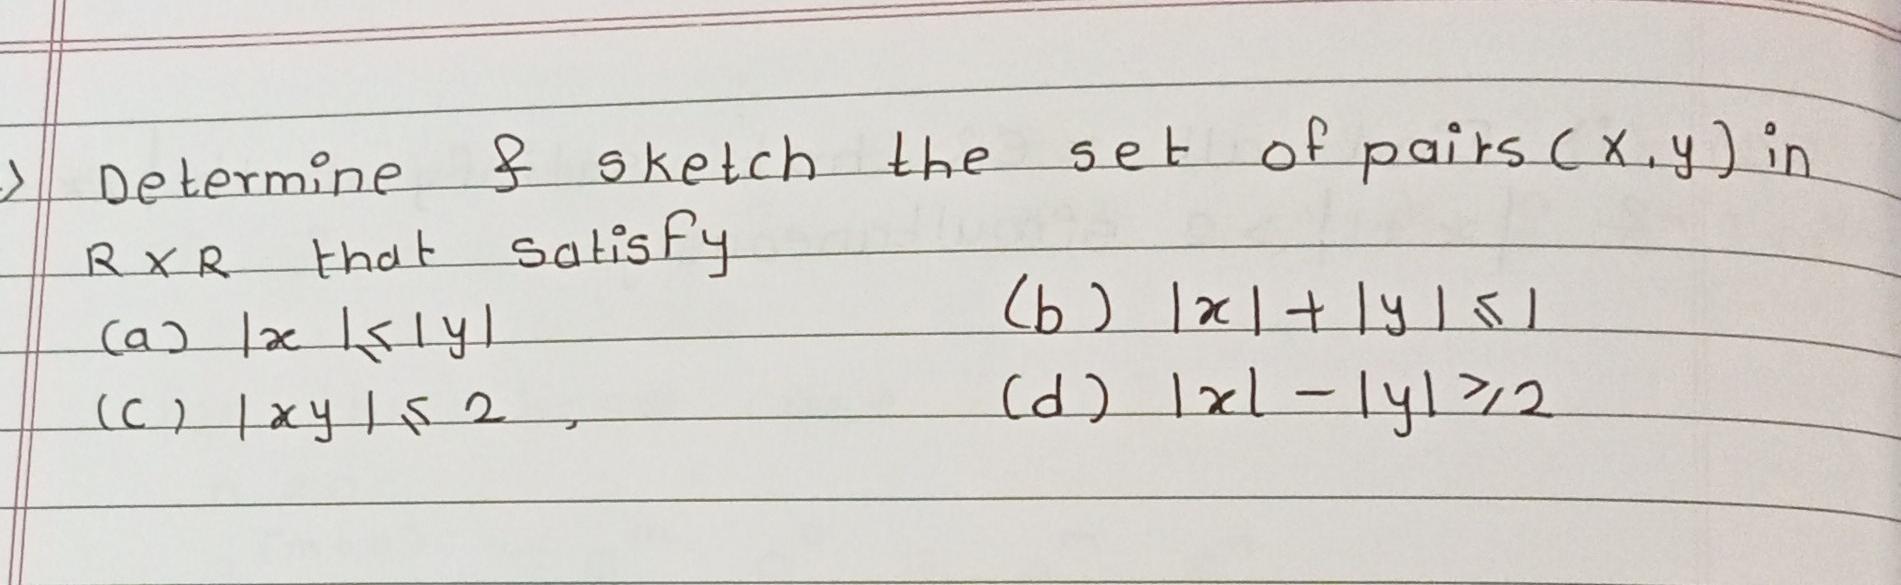 Determine & sketch the set of pairs (x,y) in
R x R that satisfy
(a) |x| ≤ |y| (b) |x| + |y| ≤ 1
(c) |xy| ≤ 2, (d) |x| - |y| ≥ 2